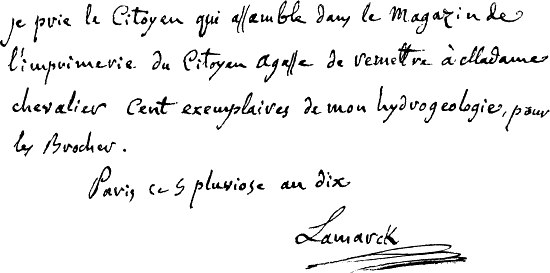 je prie le Citoyen qui assemble dans le Magazin de
l'imprimerie du Citoyen agasse de remettre à Madame
chevalier Cent exemplaires de mon hydrogeologie, pour
les Brocher.
Paris ce 5 pluviose an dix
Lamarck